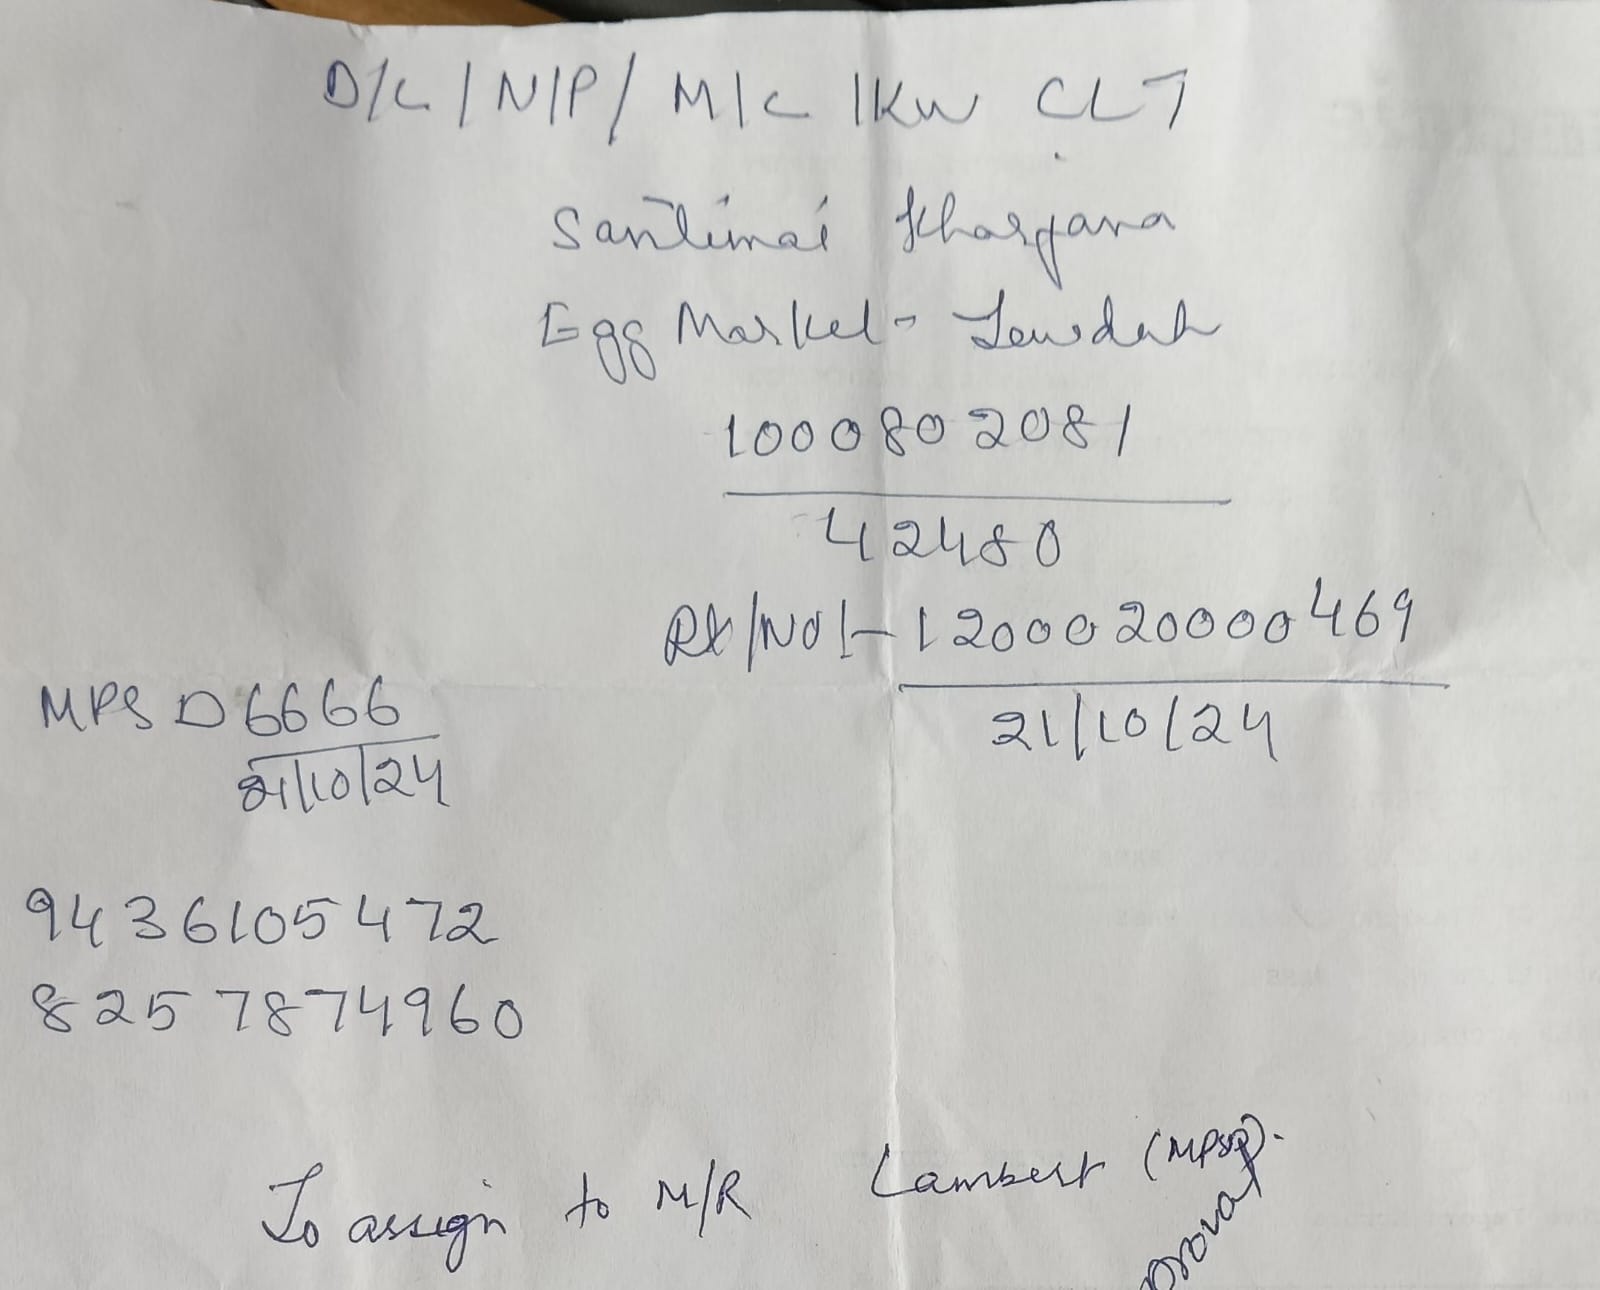 D/L / N/P / M/C 1KW CLT
Santimai Kharjana
Egg Market - Iewduh
1000802081
42480
Rt/No/- 1200020000469
21/10/24
MPS D 6666
21/10/24
9436105472
8257874960
To assign to M/R Lambert (MPSD).